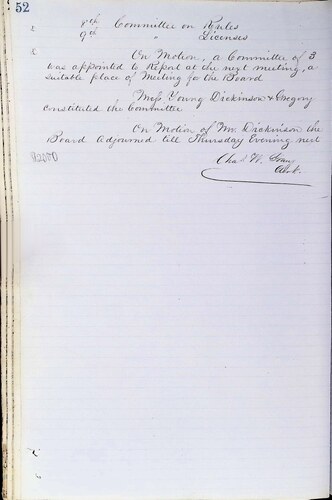 52
8th Committee on Rules
9th " Licenses
On Motion, a Committee of 3
was appointed to report at the next meeting, a
suitable place of Meeting for the Board
Mess Young Dickinson & Gregory
constituted the Committee
On Motion of Mr. Dickinson the
Board Adjourned till Thursday Evening next
Chas W.
Clerk.